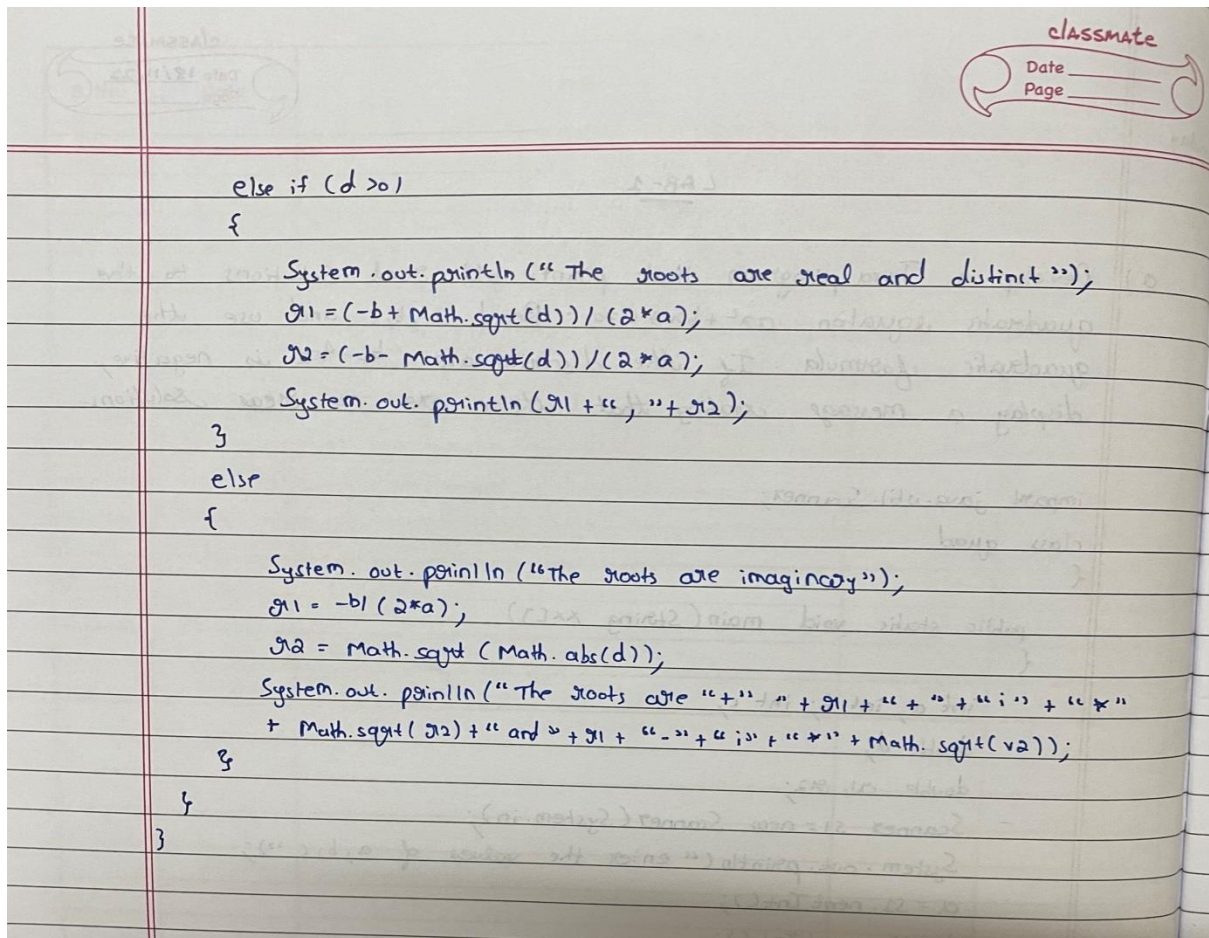 classmate
Date
Page
else if (d >0)
{
System.out.println (“ The roots are real and distinct ”);
r1 = (-b + Math.sqrt (d)) / (2 * a);
r2 = (-b - Math.sqrt (d)) / (2 * a);
System.out.println (r1 + “, ” + r2);
}
else
{
System.out.println (“The roots are imaginary”);
r1 = -b/ (2*a);
r2 = Math.sqrt (Math.abs(d));
System.out.println (“ The roots are “+” ” + r1 + “ + ” + “ i ” + “ * ”
+ Math.sqrt ( r2) + “ and ” + r1 + “ - ” + “ i” + “ * ” + Math.sqrt( r2));
}
}
}